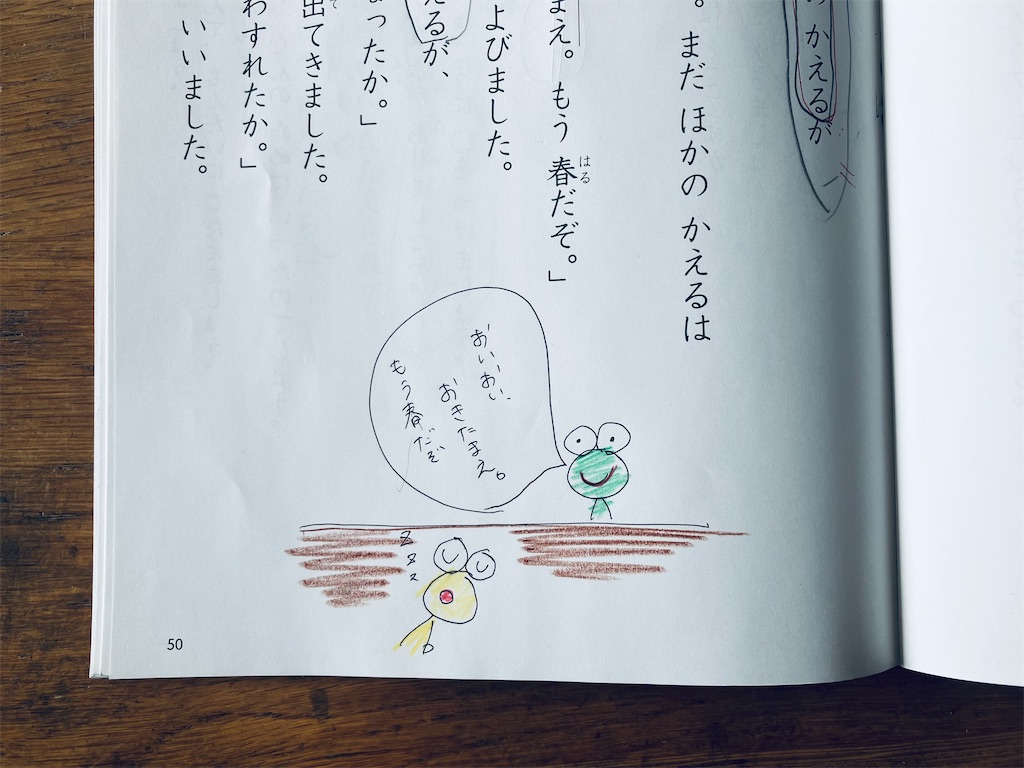 のかえるが
。まだ ほかの かえるは
まえ。もう 春だぞ。」
はる
よびました。
えるが、
ったか。」
出てきました。
で
わすれたか。」
いいました。
おいおい、
おきたまえ。
もう春だぞ
z
z
z
50